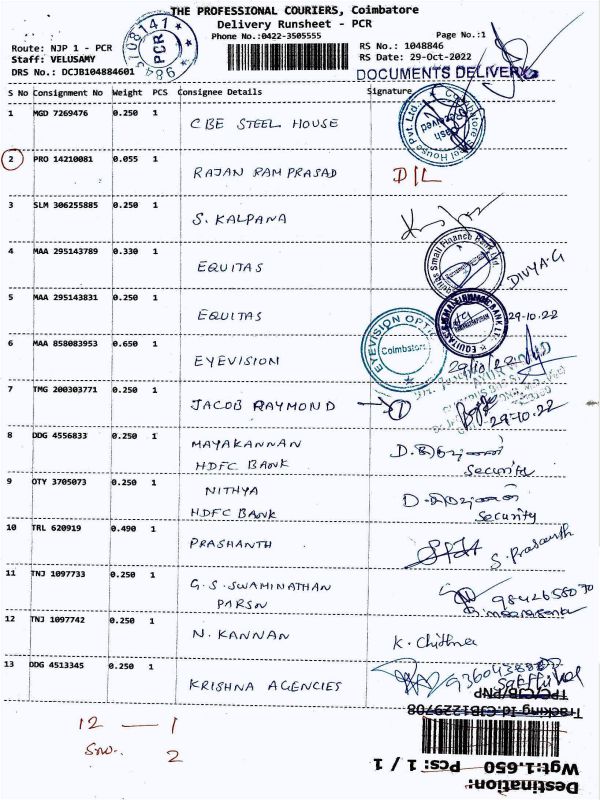 THE PROFESSIONAL COURIERS, Coimbatore
Delivery Runsheet - PCR
Phone No.:0422-3505555
Page No.:1
Route: NJP 1 - PCR
Staff: VELUSAMY
DRS No.: DCJB104884601
9843108141
PCR
RS No.: 1048846
RS Date: 29-Oct-2022
DOCUMENTS DELIVERY
S No Consignment No Weight PCS Consignee Details Signature
1 MGD 7269476 0.250 1 CBE STEEL HOUSE
2 PRO 14210081 0.055 1 RAJAN RAM PRASAD D/L
3 SLM 306255885 0.250 1 S. KALPANA
4 MAA 295143789 0.330 1 EQUITAS DIVYA.G
5 MAA 295143831 0.250 1 EQUITAS 29-10.22
6 MAA 858083953 0.650 1 EYEVISION 29/10/22
EYEVISION OPTIC
Coimbatore
7 TMG 200303771 0.250 1 JACOB RAYMOND 1 29-10-22
8 DDG 4556833 0.250 1 MAYAKANNAN
HDFC BANK Security
9 OTY 3705073 0.250 1 NITHYA
HDFC BANK Security
10 TRL 620919 0.490 1 PRASHANTH S. Prasanth
11 TNJ 1097733 0.250 1 G.S. SWAMINATHAN
PARSN
12 TNJ 1097742 0.250 1 N. KANNAN K. Chithra
13 DDG 4513345 0.250 1 KRISHNA AGENCIES
12 — 1
2
TPC/CJB/PNP
Tracking Id:CJB1229708
Wgt:1.650 Pcs: 1 / 1
Destination: